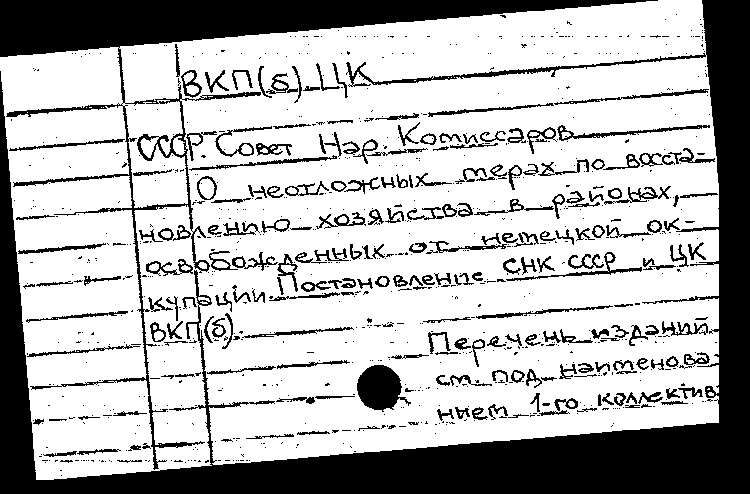 ВКП(б) ЦК
СССР. Совет Нар. Комиссаров
О неотложных мерах по восста-
новлению хозяйства в районах,
освобожденных от немецкой ок-
купации. Постановление СНК СССР и ЦК
ВКП(б).
Перечень изданий
см. под наименова-
нием 1-го коллектив